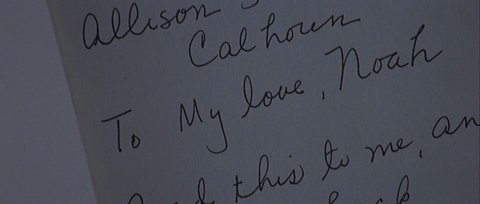 Allison
Calhoun
To My love, Noah
this to me, an